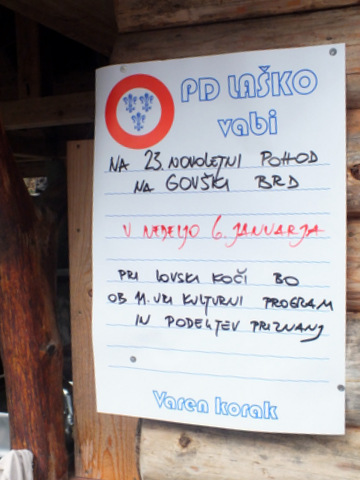 PD LAŠKO
vabi
NA 23. NOVOLETNI POHOD
NA GOVŠKI BRD
V NEDELJO 6. JANUARJA
PRI LOVSKI KOČI BO
OB 11. URI KULTURNI PROGRAM
IN PODELITEV PRIZNANJ
Varen korak